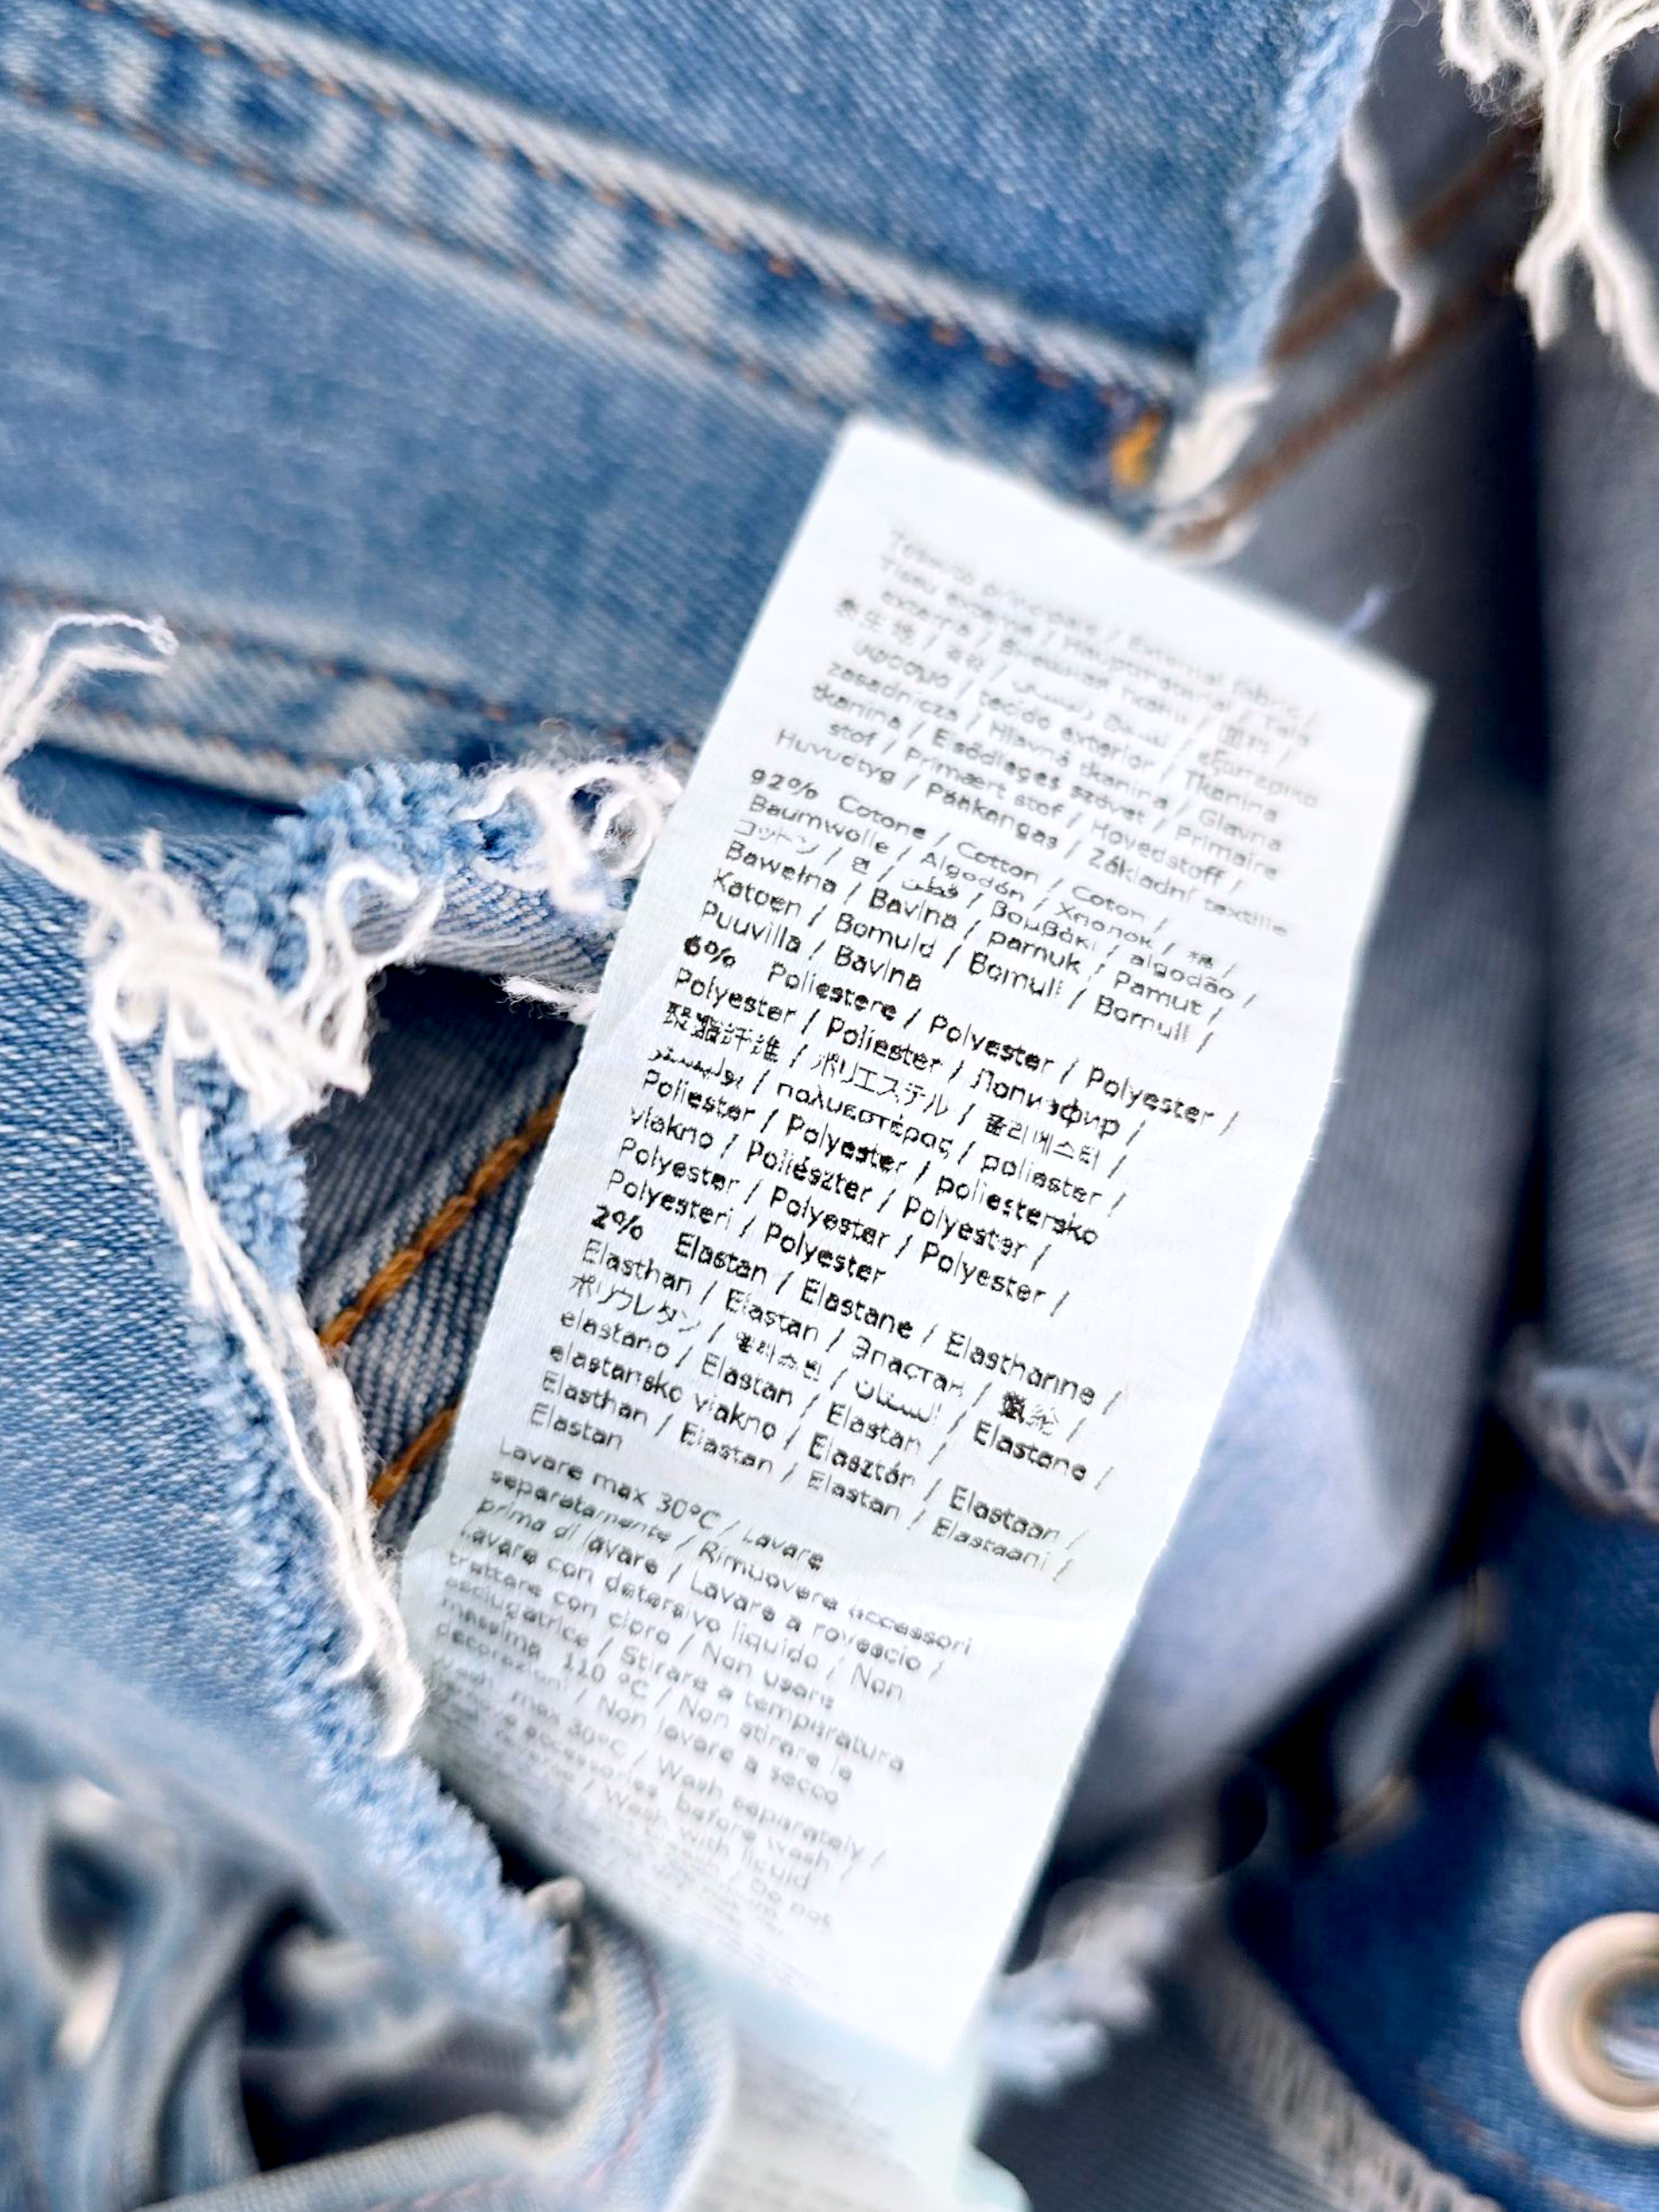 Tessuto principale / External fabric /
Tissu externe / Hauptmaterial / Tela
externa / Внешняя ткань / 面料 /
表生地 / 겉감 / / εξωτερικό
ύφασμα / tecido exterior / Tkanina
zasadnicza / Hlavná tkanina / Glavna
tkanina / Elsődleges szövet / Primaire
stof / Primært stof / Hovedstoff /
Huvudtyg / Pääkangas / Základní textilie
92% Cotone / Cotton / Coton /
Baumwolle / Algodón / Хлопок / 棉 /
コットン / 면 / قطن / Βαμβάκι / algodão /
Bawełna / Bavlna / parnuk / Pamut /
Katoen / Bomuld / Bomull / Bomull /
Puuvilla / Bavlna
6% Poliestere / Polyester / Polyester /
Polyester / Poliester / Полиэфир /
聚酯纤维 / ポリエステル / 폴리에스터 /
بوليستر / πολυεστέρας / poliester /
Poliester / Polyester / poliestersko
vlakno / Poliészter / Polyester /
Polyester / Polyester / Polyester /
Polyesteri / Polyester
2% Elastan / Elastane / Elasthanne /
Elasthan / Elastan / Эластан / 氨纶 /
ポリウレタン / / / Elastane /
elastano / Elastan / Elastan /
elastansko vlakno / Elasztán / Elastaan /
Elasthan / Elastan / Elastan / Elastaani /
Elastan
Lavare max 30°C / Lavare
separatamente / Rimuovere accessori
prima di lavare / Lavare a rovescio /
Lavare con detersivo liquido / Non
trattare con cloro / Non usare
asciugatrice / Stirare a temperatura
massima 110 °C / Non stirare le
decorazioni / Non lavare a secco
Wash max 30°C / Wash separately /
Remove accessories before wash /
reverse / Wash with liquid
/ Do not